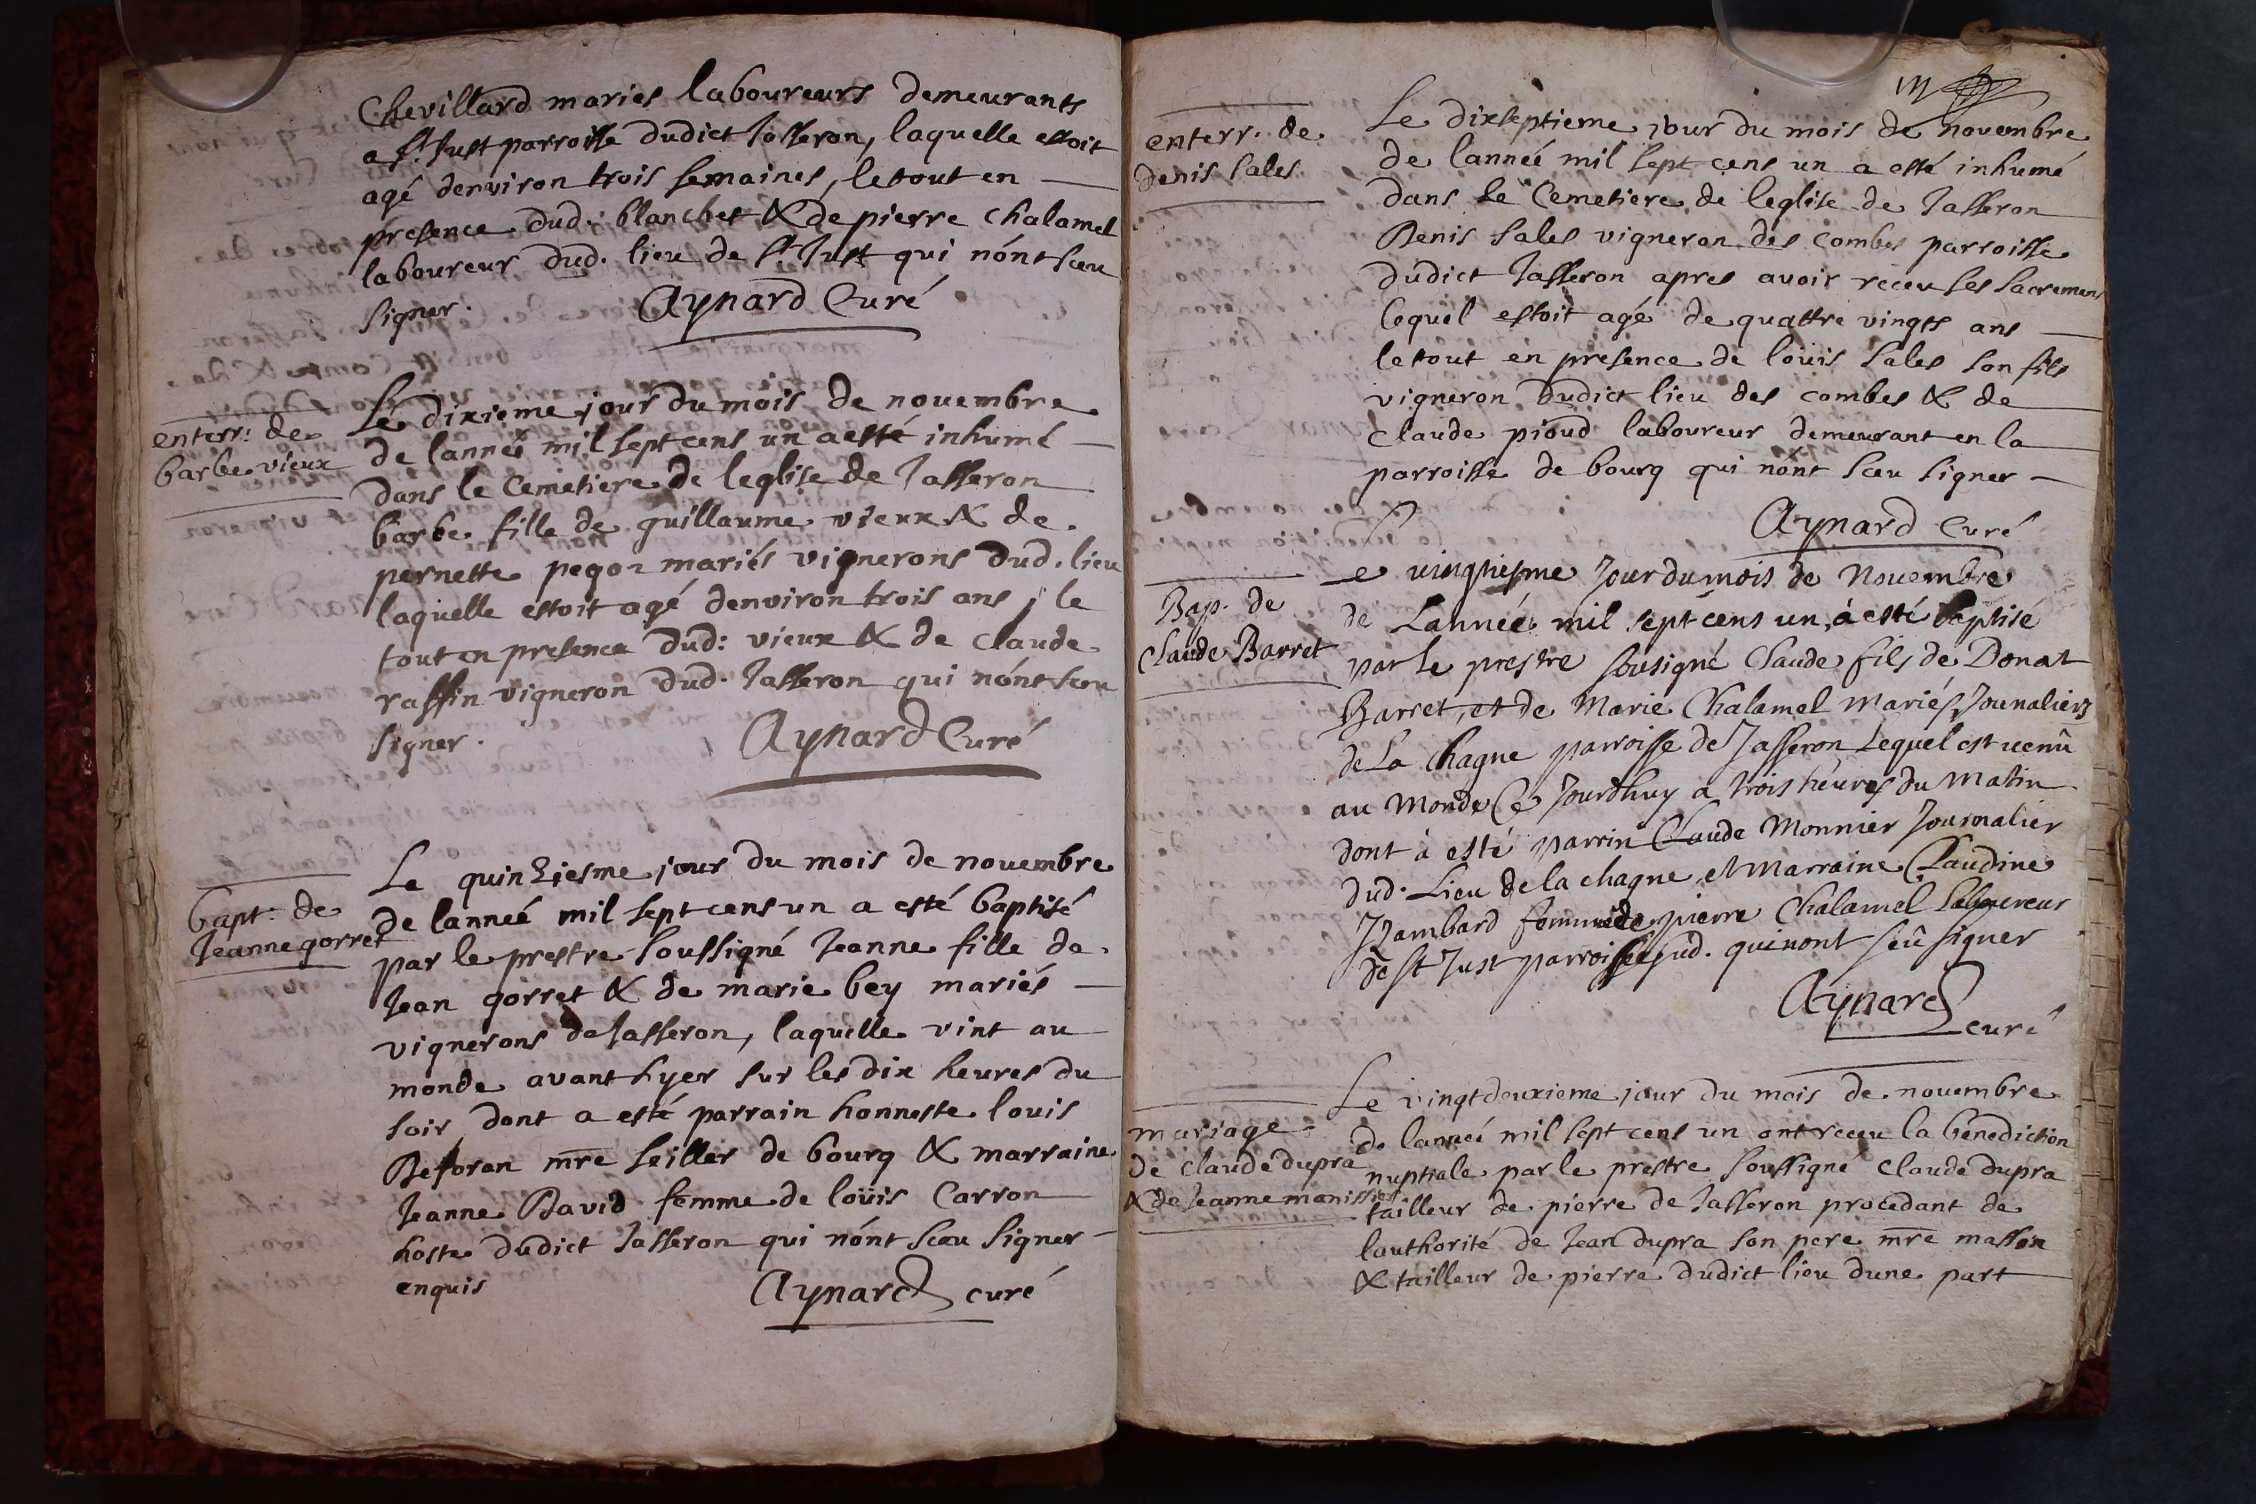 Chevillard mariés laboureurs demeurants
a St Just parroisse dudict Jasseron, laquelle estoit
agé denviron trois semaines, le tout en
presence dud. blanchet & de pierre chalamel
laboureur dud. lieu de St Just qui nónt sceu
signer.
Aynard Curé
enterr: de
barbe vieux
Le dixieme jour du mois de nouembre
de lanneé mil sept cens un a esté inhumé
dans le Cemetiere de leglise de Jasseron
barbe fille de guillaume vieux & de
pernette pegoz mariés vignerons dud. lieu
laquelle estoit agé denviron trois ans ; le
tout en presence dud: vieux & de claude
raffin vigneron dud. Jasseron qui nónt sceu
signer.
Aynard Curé
bapt: de
Jeanne gorret
Le quinziesme jour du mois de novembre
de lanneé mil sept cens un a esté baptisé
par le prestre soussigné Jeanne fille de
Jean gorret & de marie bey mariés
vignerons de Jasseron, laquelle vint au
monde avant hyer sur les dix heures du
soir dont a esté parrain honneste louis
Deforan mre seiller de bourg & marraine
Jeanne David femme de loüis Carron
hoste dudict Jasseron qui nónt sceu signer
enquis
Aynard curé
enterr. de
denis sales
Le dixseptieme jour du mois de novembre
de lanneé mil sept cens un a esté inhumé
dans le Cemetiere de leglise de Jasseron
Denis sales vigneron des combes parroisse
dudict Jasseron apres avoir receu ses sacremens
lequel estoit agé de quattre vingts ans
le tout en presence de loüis sales son fils
vigneron dudict lieu des combes & de
claude pioud laboureur demeurant en la
parroisse de bourg qui nont sceu signer
Aynard Curé
Bap. de
Claude Barret
Le uingtiesme Jour du mois de Nouembre
de Lanneé mil sept cens un, à esté baptisé
par le prestre sousigné Claude fils de Donat
Barret, et de Marie Chalamel Mariés, Jounaliers
de La Chagne parroisse de Jasseron Lequel est uenû
au Monde Ce Jourdhuy a trois heures du Matin
dont à esté parrin Claude Monnier Journalier
dud. Lieu de la chagne et Marraine Claudine
Jzambard femme de pierre Chalamel Laboureur
de St Just parroisse sud. qui nont seû signer
Aynard
curé
mariage
de claude dupra
& de Jeanne manissier
Le vingtdeuxieme jour du mois de nouembre
de lanneé mil sept cens un ont receu la bénediction
nuptiale par le prestre soussigné Claude dupra
tailleur de pierre de Jasseron procedant de
lauthorité de Jean dupra son pere mre masson
& tailleur de pierre dudict lieu dune part